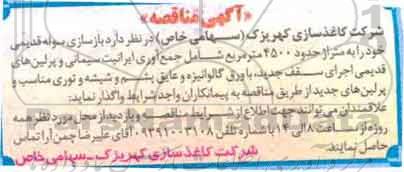 «آگهی مناقصه»
شرکت کاغذسازی کهریزک (سهامی خاص) در نظر دارد بازسازی سوله قدیمی
خود را به متراژ حدود ۴۵۰۰ مترمربع شامل جمع آوری ایرانیت سیمانی و پرلین های
قدیمی اجرای سقف جدید، با ورق گالوانیزه و عایق پشم و شیشه و توری مناسب و
پرلین های جدید از طریق مناقصه به پیمانکاران واجد شرایط واگذار نماید:
علاقمندان می توانند جهت اطلاع از شرایط مناقصه و بازدید از محل مورد نظر همه
روزه از ساعت ۸ الی ۱۴ با شماره تلفن ۰۹۳۹۱۰۰۳۱۰۸ آقای علیرضا چمن آرا تماس
حاصل نمایند.
شرکت کاغذسازی کهریزک - سهامی خاص